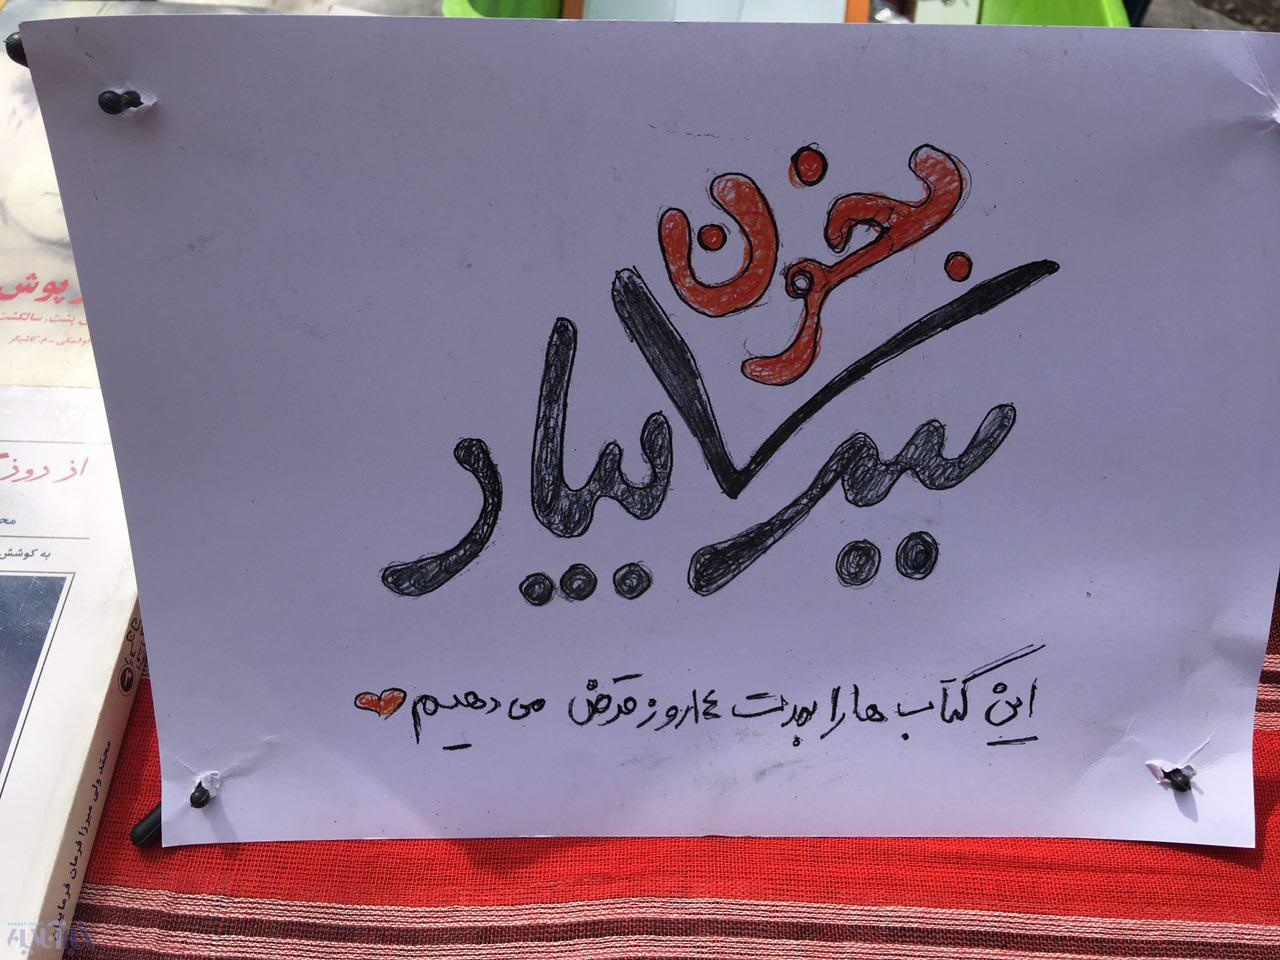 بخون
ببر بیار
این کتاب ها را بمدت ۱٤ روز قرض می دهیم
پوش
از دوز
به کوشش
محمد ولی میرزا فرمان فرماییان